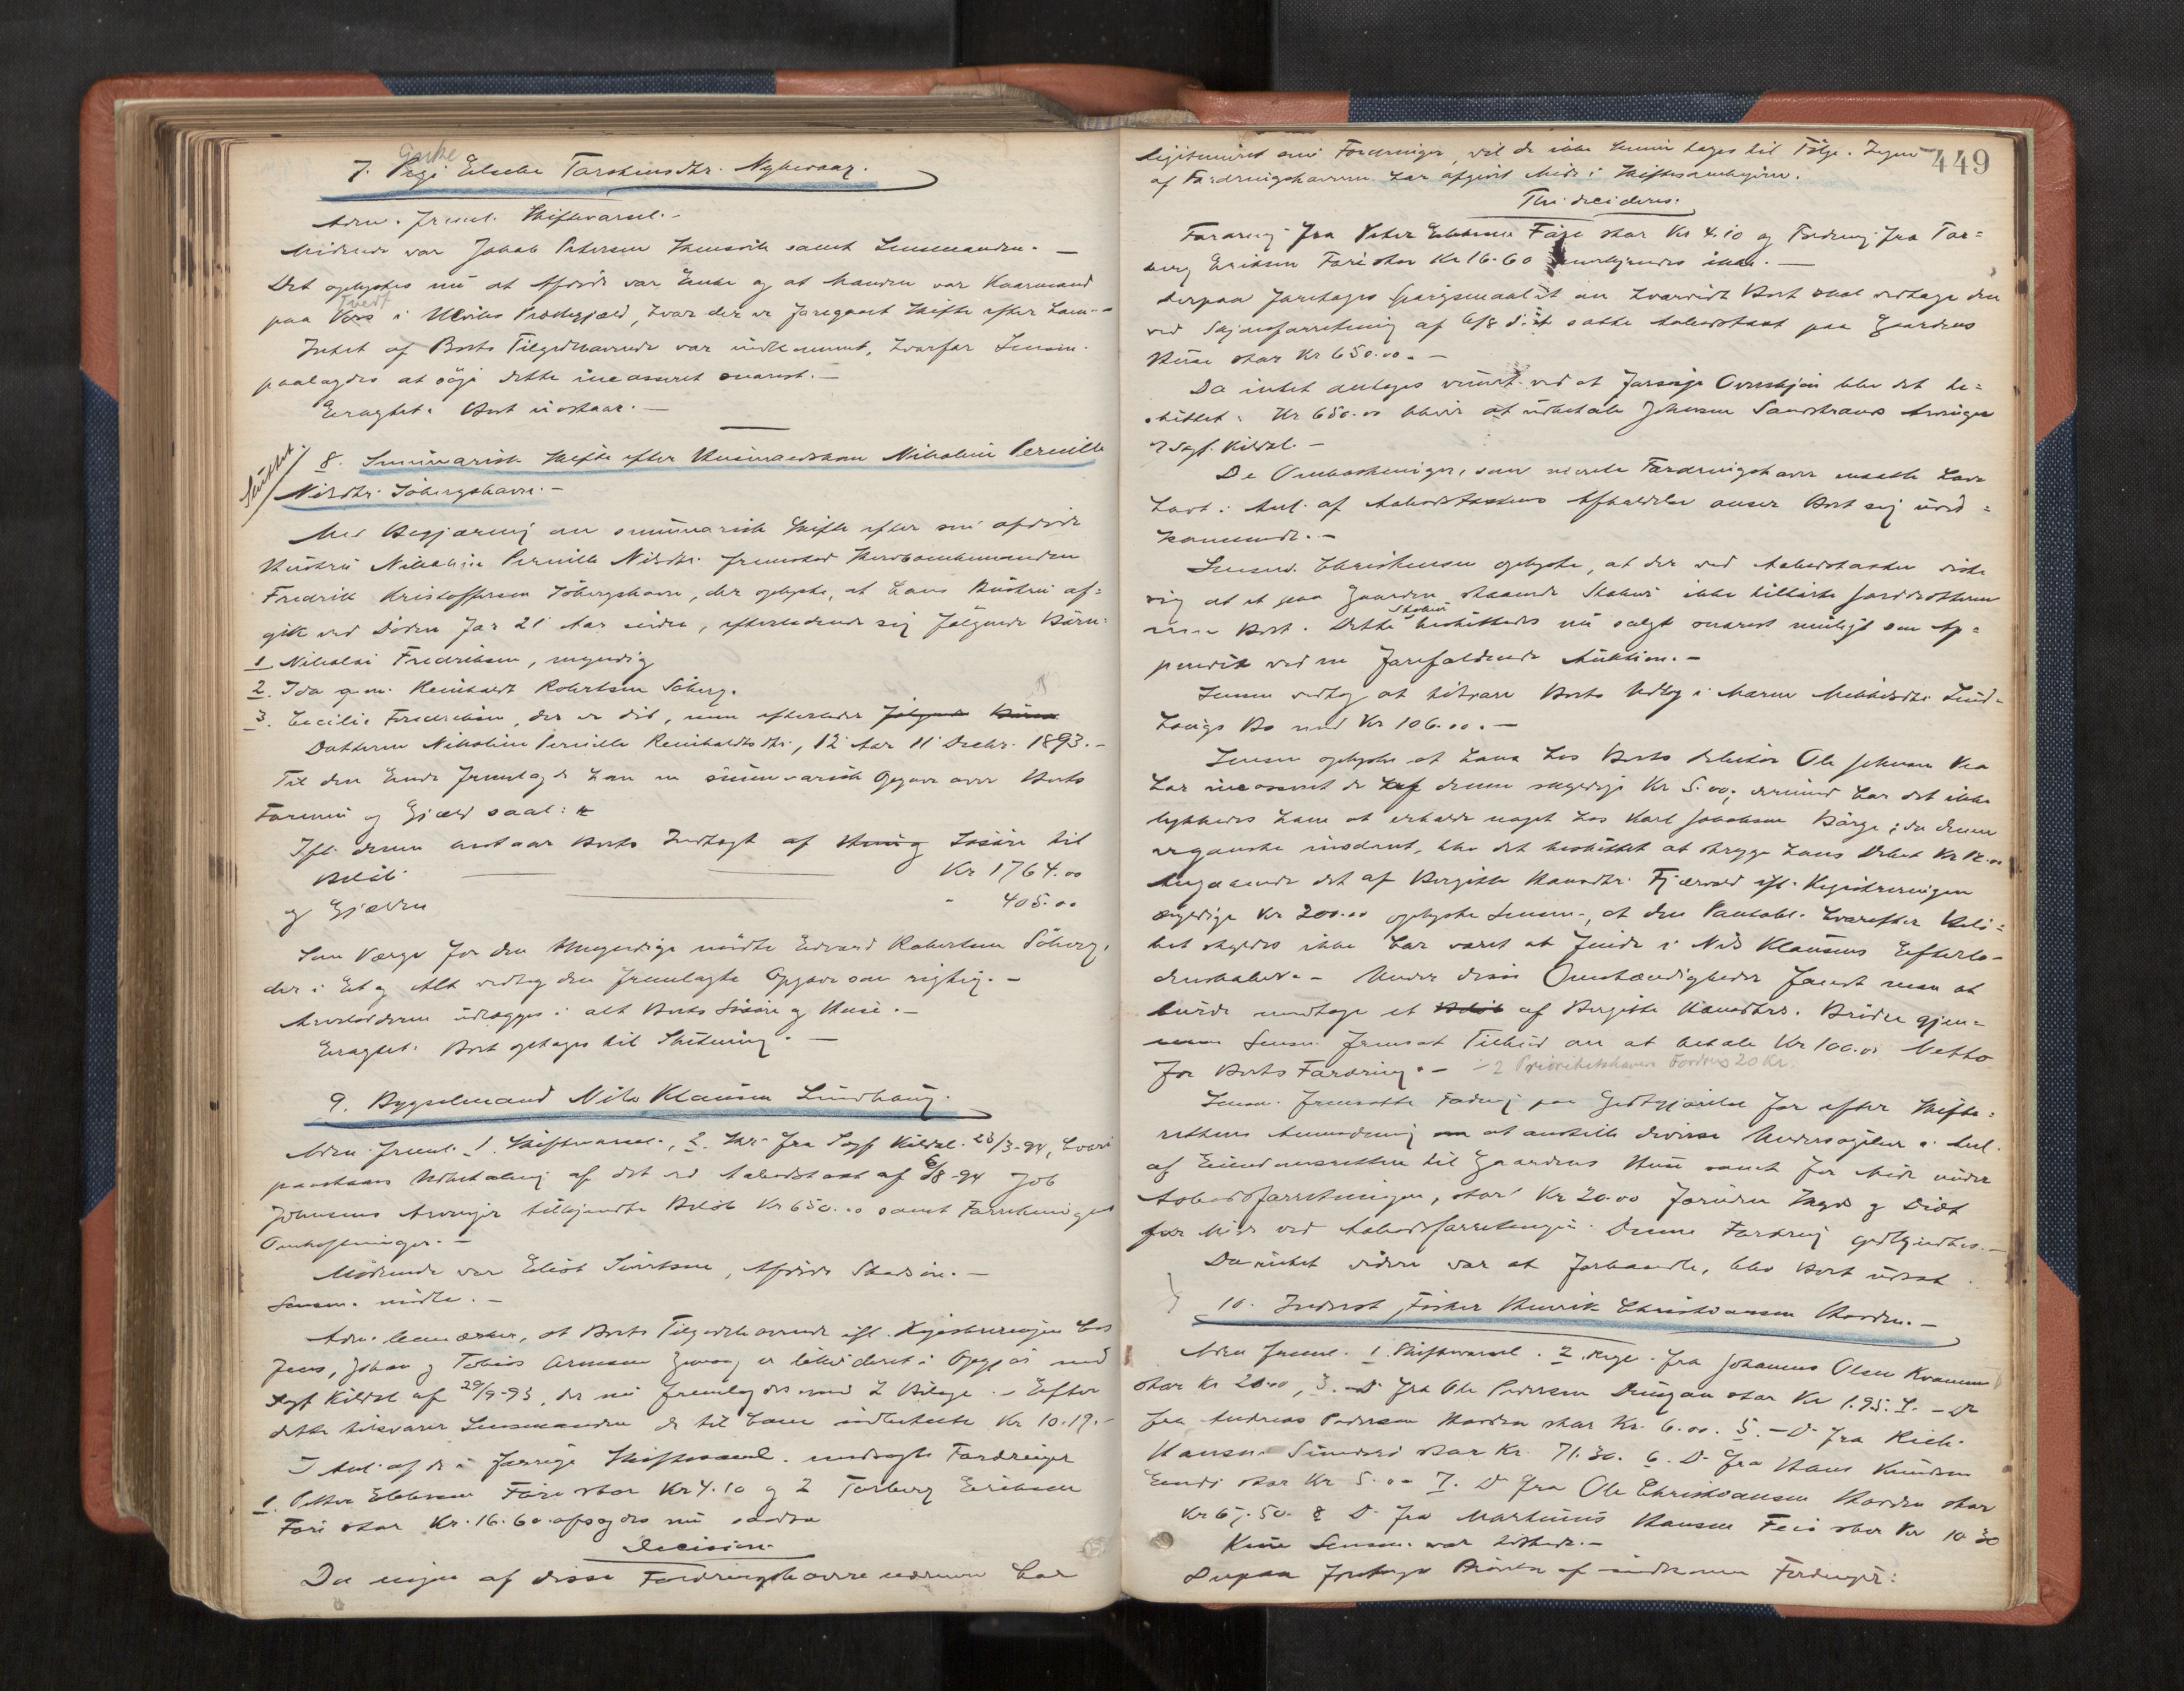 Enke
7. Pige Elsebe Torstensdtr. Nybevaag.
Adm. freml. Skiftevarsel.-
Mødende var Jakob Petersen samt Lensmanden. -
Det oplystes nu at Afdøde var Enke og at Manden var Kaarmand
Tverf
paa i Præstegjæld, hvor der er foregaaet Skifte efter ham.-
Intet af Boets Tilgodehavende var indkommet, hvorfor Lensm.
paalagdes at søge dette incasseret snarest.-
Eragtet: Boet udstaar.-
Sluttet.
8. Summarisk Skifte efter Nikoline Pernille
Nilsdtr. Söbergshavn.-
Med Begjæring om summarisk Skifte efter sin afdøde
Hustru Nikoline Pernille Nilsdtr. fremstod
Fredrik Kristoffersen Söbergshavn, der oplyste, at hans Hustru af=
gik ved Døden for 21 Aar siden, efterladende sig følgende Børn:
1. Nikolai Fredriksen, myndig
2. Ida g. m. Reinholdt Robertsen Söberg.
3. Cecilie Fredriksen, der er död, men efterlader følgende Børn
Datteren Nikoline Pernille Reinholdtsdtr., 12 Aar 11 Decbr. 1893.-
Til den Ende fremlagde han en summarisk Opgave over Boets
Formue og Gjæld saal:
Ifl. denne Boets Indtægt af Løsøre til
Beløb Kr 1764.00
og Gjælden - 405.00
Som Værge for den Umyndige mødte Edvard Robertsen Söberg,
der i Et og Alt vedtog den fremlagte Opgave som rigtig.-
Arvelodderne udlægges i alt Boets Løsøre og Huse.-
Eragtet: Boet optages til Slutning.-
9. Bygselmand Nils Klausen Lindhaug.
Adm. freml. 1. Skiftevarsel., 2. Skr. fra Sagf. Kildal 28/3-94, hvori
paastaaes Udbetaling af det ved Aabodstaxt af 6/8-94 Job
Johnsens Arvinger tilkjendte Beløb Kr 650.00 samt Forretningens
Omkostninger.-
Mødende var Eliot Sivertsen, Afdøde .-
Lensm. mødte.-
Adm. bemærker, at Boets Tilgodehavende ifl. Registreringen hos
Jens, Johan og Tobias er likvideret i Opgjør med
Sagf Kildal af 29/9-93, der nu fremlagdes med 2 Bilage.- Efter
dette tilsvarer Lensmanden de til ham indbetalte Kr 10.19.-
I Anl. af de i forrige Skiftesaml. modtagte Fordringer
1. Petter Ebbesen Före stor Kr 4.10 og 2 Torberg Eriksen
Föri stor Kr. 16.60 afsagdes nu saadan
Decision.
Da ingen af disse Fordringshavere nærmere har
449
legitimeret sine Fordringer, vil de ikke kunne tages til Følge. Ingen
af Fordringshaverne har afgivet Møde i Skiftesamlingen.
Thi decideres:
Fordring fra Peter Ebbesen Före stor Kr 4.10 og Fordring fra Tor=
berg Eriksen Föri stor Kr 16.60 anerkjendes ikke.-
Derpaa foretages Spørgsmaalet om hvorvidt Boet skal vedtage den
ved Skjønsforretning af 6/8 d. A. satte Aabodstaxt paa Gaardens
Huse stor Kr 650.00.-
Da intet antages vundet ved at forsøge Overskjøn blev det be=
sluttet: Kr 650.00 bliver at udbetale Johnsen Sandstrands Arvinger
v. Sagf. Kildal.-
De Omkostninger, som nævnte Fordringshaver maatte have
havt i Anl. af Aabodstaxtens Afholdelse anser Boet sig uved=
kommende.-
Lensmd. Christensen oplyste, at der ved Aabodstaxten viste
sig at et paa Gaarden staaende Stabur ikke tilhørte Jorddrotten
men Boet. Dette Stabur besluttedes nu solgt snarest muligt som Ap=
pendix ved en forefaldende Auktion.-
Lensm vedtog at tilsvare Boets Udlæg i Maren Mikkelsdtr. Lind=
haugs Bo med Kr 106.00.-
Lensm oplyste at han hos Boets Debitor Ole Johnsen
har incasseret de af denne skyldige Kr 5.00; derimod har det ikke
lykkedes ham at erholde noget hos Karl Jakobsen Börge; da denne
er ganske insolvent, blev det besluttet at stryge hans Debet Kr 12.00
Angaaende det af Birgitte Hansdtr. Fjærvold ifl. Registreringen
skyldige Kr 200.00 oplyste Lensm., at den Panteobl. hvorefter Belø=
bet skyldes ikke har været at finde i Nils Klausens Efterla-
denskaber.- Under disse Omstændigheder fandt man at
burde modtage et Beløb af Birgitte Hansdtrs. Broder gjen=
nem Lensm. fremsat Tilbud om at betale Kr 100.00 Netto
for Boets Fordring.- ÷ 2 Prioritetshaver Fordres 20 Kr.
Lensm. fremsatte Fordring paa Godtgjørelse for efter Skifte=
rettens Anmodning om at anstille diverse Undersøgelser i Anl.
af Eiendomsretten til Gaardens Huse samt for Møde under
Aabodsforretningen, stor Kr 20.00 foruden Skyds og Diæt
for Møde ved Aabodsforretningen. Denne Fordring godkjendtes.-
Da intet videre var at forhandle, blev Boet udsat.
10. Inderst, Fisker Henrik Christiansen Horden.-
Adm freml. 1. Skiftevarsel. 2. Regn. fra Johannes Olsen
stor Kr 20.00, 3. - D fra Ole Pedersen stor Kr 1.95. 4. - D
fra Andreas Pedersen Horden stor Kr. 6.00. 5. - D. fra Rich.
Hansen stor Kr. 71.30. 6. D. fra Hans Knudsen
stor Kr 5.00 7. D. fra Ole Christiansen Horden stor
Kr 67.50. 8 D. fra Martinus Hansen stor Kr 10.30
Kun Lensm. var tilstede.-
Derpaa foretoges Prøvelse af indkomne Fordringer: